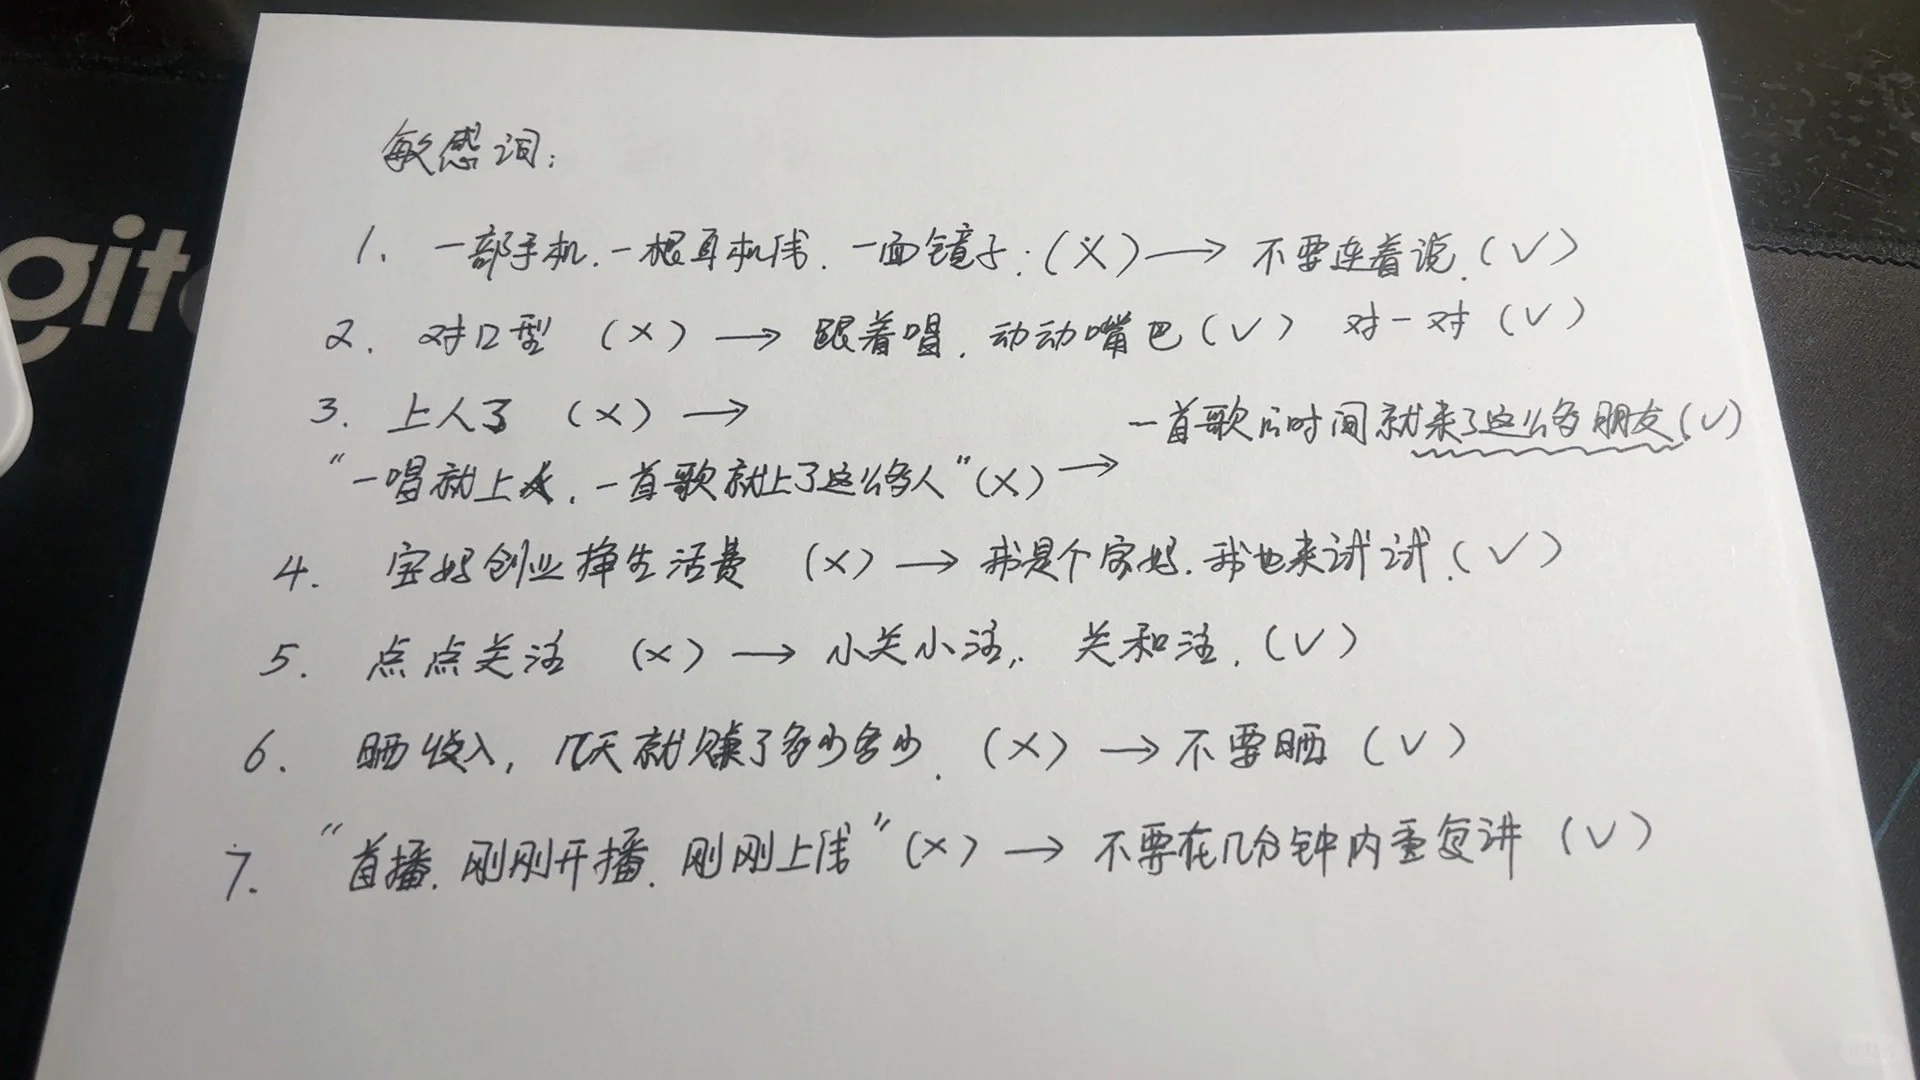 git
敏感词:
1. 一部手机.一根耳机线.一面镜子:(X)→不要连着说.(√)
2. 对口型 (X)→跟着唱.动动嘴巴(√) 对一对(√)
3. 上人了 (X)→
"一唱就上人.一首歌就上了这么多人"(X)→一首歌后时间就来了这么多朋友(√)
4. 宝妈创业挣生活费 (X)→我是个宝妈.我也来试试.(√)
5. 点点关注 (X)→小关小注,. 关和注.(√)
6. 晒收入,几天就赚了多少多少.(X)→不要晒(√)
7. "首播.刚刚开播.刚刚上线"(X)→不要在几分钟内重复讲(√)